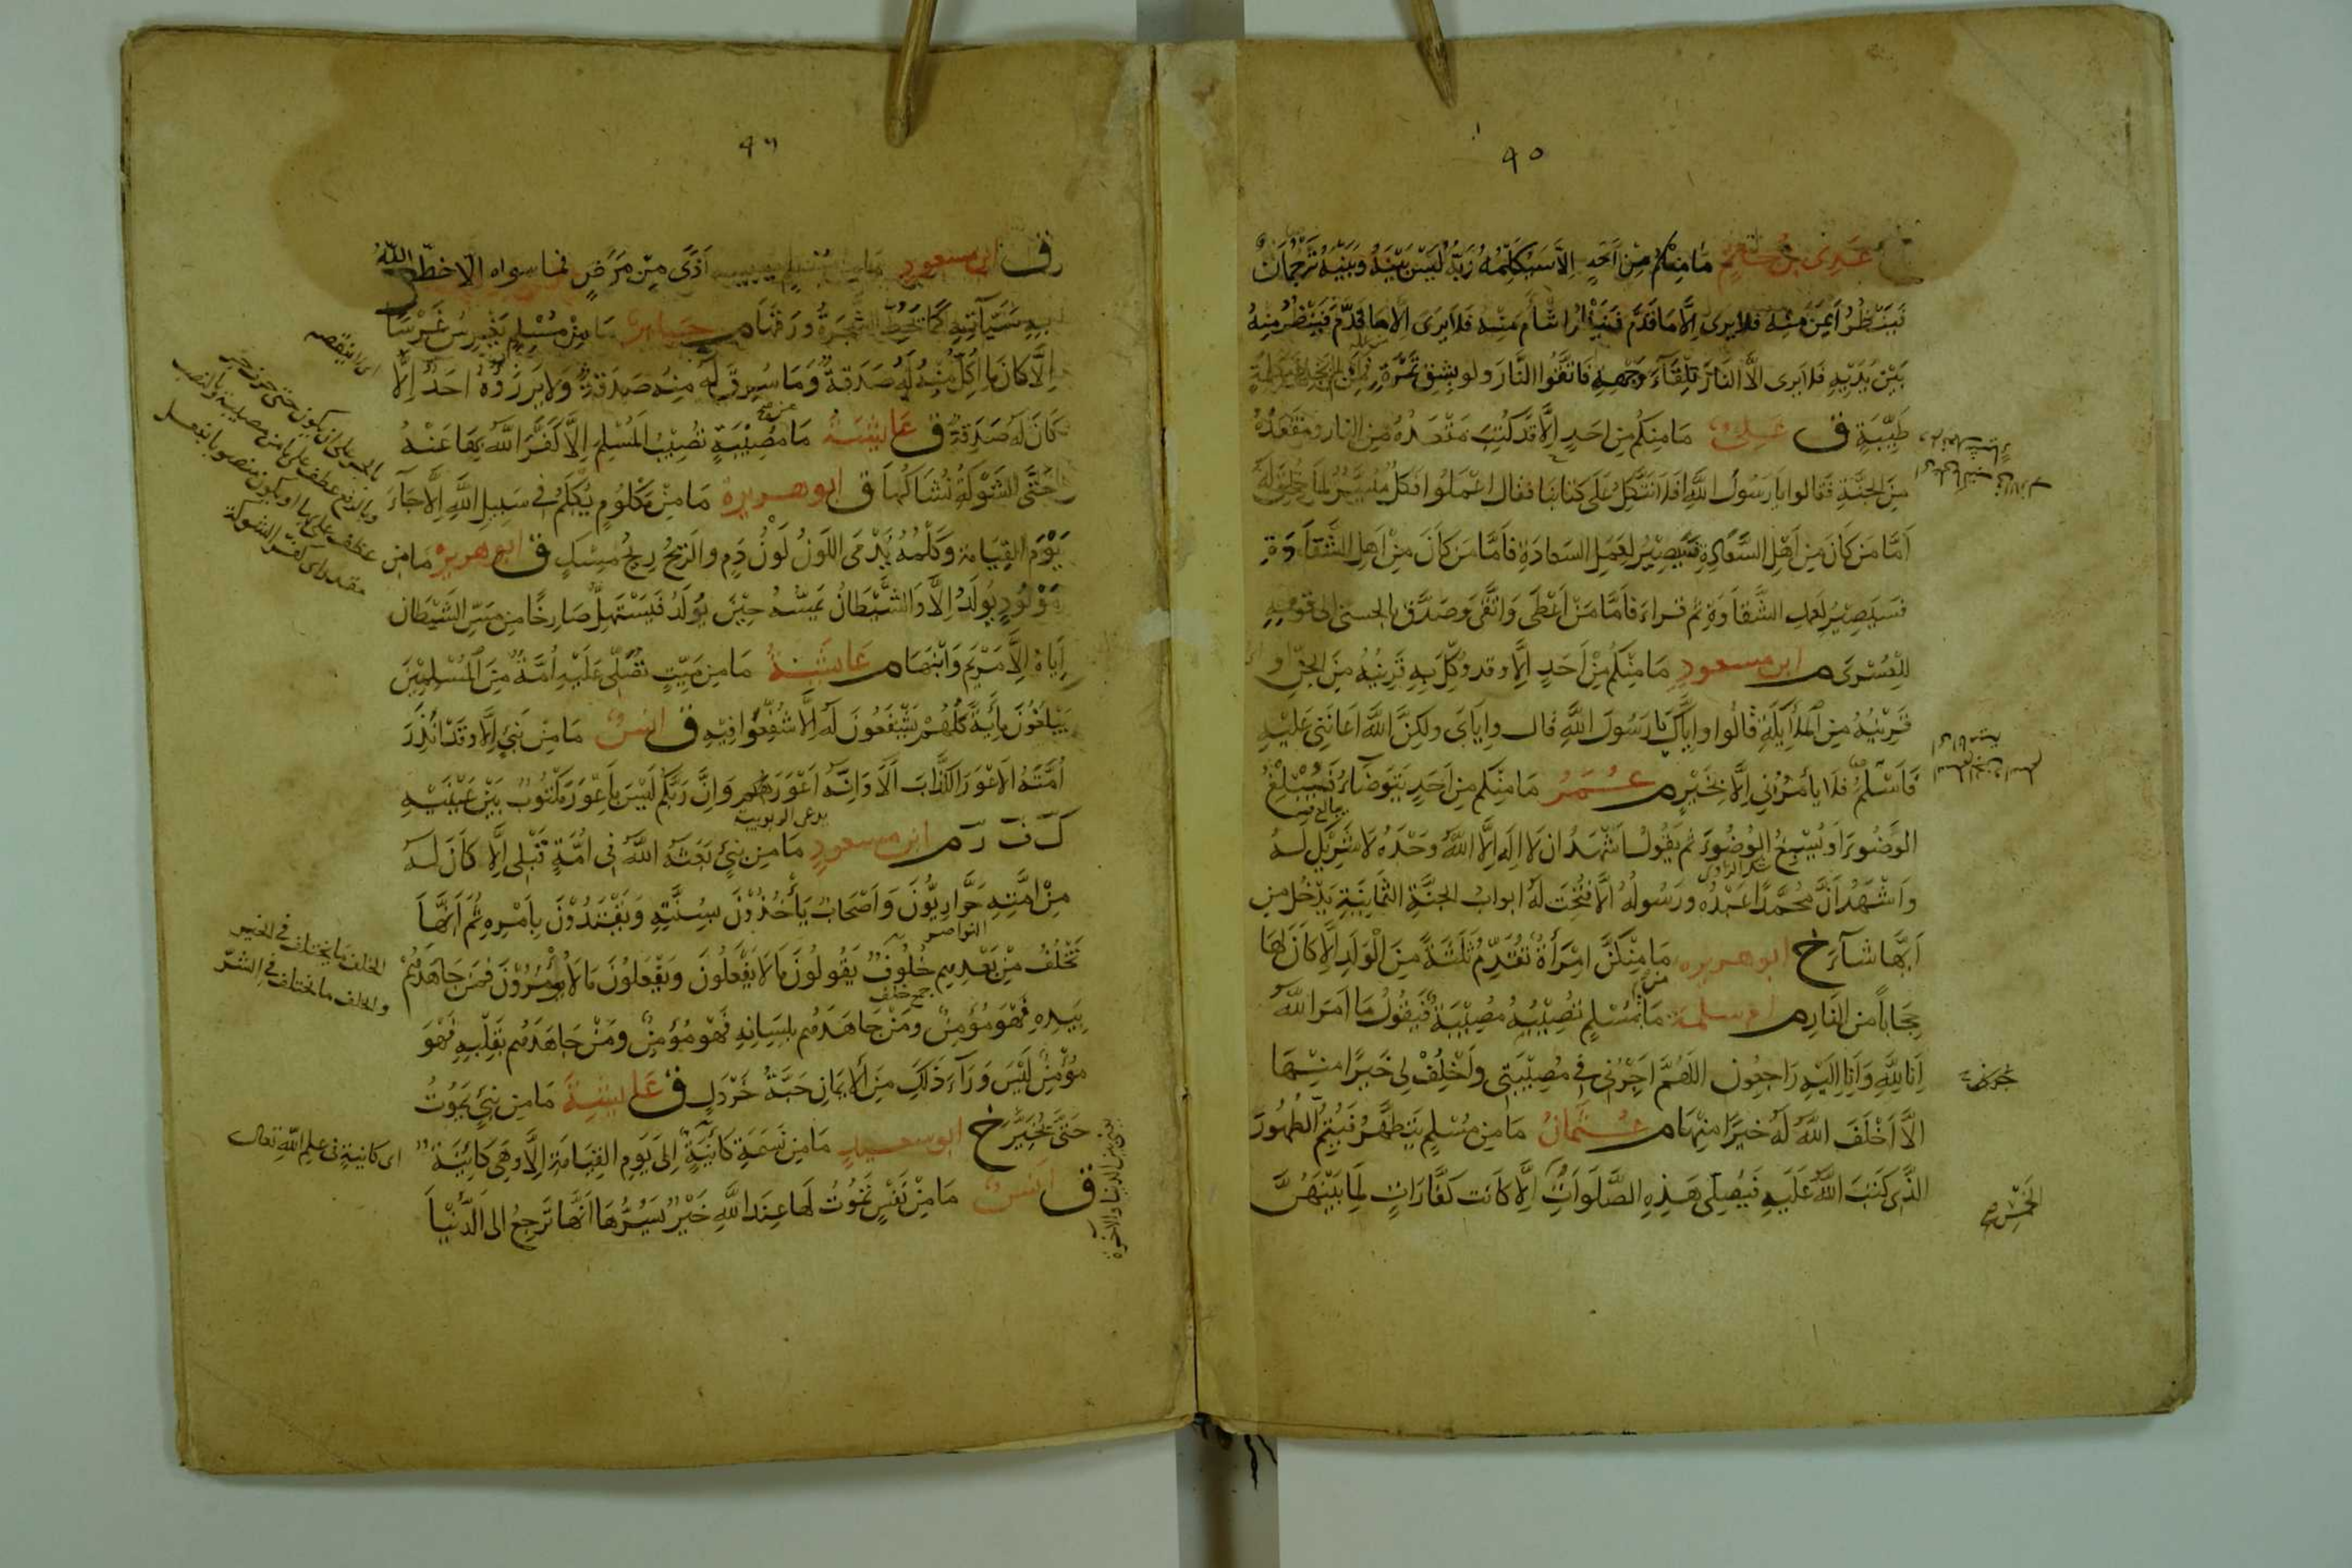 ٩٥
عدى بن حاتم مَا مِنكُمْ مِنْ اَحَدٍ اِلاَّ سَيُكَلِّمُهُ رَبّهُ لَيْسَ بَيْنَهُ وَبَيْنَهُ تَرْجُمَانٌ
فَيَنْظُرُ اَيْمَنَ مِنْهُ فَلا يرى اِلَّا مَا قَدَّمَ فَيَنْظُرُ اشْأَمَ مِنْه فَلاَ يَرَى اِلاَّ مَا قَدَّمَ فَيَنْظُرُ مِنْهُ
بَيْنَ يَدَيْهِ فَلا يرى الَّا النَّارَ تِلْقَآءَ وَجْهِهِ فَاتَّقُوا النَّارَ ولو بِشِقِّ تَمْرَةٍ فَمَن لم يَجِد فبكلمة
طَيِّبَةٍ ق عَلِىٌّ مَا مِنكُم مِن احَدٍ اِلَّا قَدْ كُتِبَ مَقْعَدُهُ مِنَ النار ومَقْعَدُهُ
مِنَ الجنَّةِ فَقَالوا يا رَسُولَ اللّٰهِ افَلاَ نَتَّكِلُ عَلَى كتَابِنَا فقال اعْمَلُوا فَكُلٌّ مُيَسَّرٌ لِمَا خُلِقَ لَهُ
اَمَّا مَن كَانَ مِن اَهْلِ السَّعَادَةِ فَسَيَصِيْرُ لِعَمَلِ السَعادَةِ فَاَمَّا مَن كَانَ مِنْ اَهلِ الشَّقَاوَةِ
فسَيَصِيْرُ لِعَمَلِ الشَّقَاوَةِ ثم قراء فَاَمَّا مَنْ اَعْطَى وَاتَّقَى وَصَدَّقَ بالحسنى الى قوله
لِلْعُسْرَى م ابن مسعودٍ مَا مِنْكُمْ مِنْ اَحَدٍ اِلَّا وقد وُكِّلَ بِهِ قَرِيْنُهُ مِنَ الجِنّ و
قَرِيْنُهُ مِنَ المَلَائِكَةِ قَالُوا وايَّاكَ يا رَسُولَ اللّٰهِ قال وايَاىَ ولكِنَّ اللّٰهَ اَعَانَنِى عَلَيْهِ
فَاَسْلَمَ فَلَا يأمُرُنى اِلَّا بِخَيْرٍ م عُمَرُ مَا مِنكم مِن اَحَدٍ يَتَوَضّأُ فَيُبْلِغُ
الوَضُوءَ اَو يُسْبِغُ الوضُوءَ ثم يقُولُ اشْهَدُ ان لا اِلهَ اِلَّا اللّٰهُ وَحْدَهُ لا شَرِيْكَ لَهُ
شك الراوى
وَاشْهَدُ اَنَّ مُحَمَّدًا عَبْدُه ورَسُولُهُ الَّا فُتِحَت لَهُ ابوابُ الجنَّةِ الثمَانِيَةِ يَدْخُلُ مِن
اَيِّهَا شَآءَ خ ابوهريره مَا مِنْكنَّ امْرَأَةٌ تُقَدِّمُ ثَلثَةً مِنَ الْوَلَدِ اِلَّا كَانَ لَهَا
حِجَابًا مِن النَارِ م ام سلمة مَا مِنْ مُسْلِمٍ تُصِيْبُهُ مُصِيْبَةٌ فَيَقُولُ مَا اَمَرَ اللّٰهُ
اِنَا لِلّٰهِ وَاِنَا اِلَيْهِ رَاجِعُون اللّهُمَّ اجِرْنِى فى مُصِيْبَتِى وَاَخْلِفْ لِى خَيرًا مِنْهَا
الَّا اَخْلَفَ اللّٰهُ لَهُ خيرًا مِنْهَا م عُثْمَانُ مَا مِن مُسْلِمٍ يَتَطَهَّرُ فَيُتِمُّ الطُهُورَ
الَّذِى كَتَبَ اللّٰهُ عَلَيهِ فَيُصَلِّى هَذِهِ الصَّلَوَاتِ اِلَّا كَانَت كَفَّارَاتٍ لِمَا بَيْنَهُنَّ
الخَمْسَ صح
٩٦
ق ابن مسعودٍ اَذًى مِنْ مَرَضٍ فما سواه الّا حَطَّ اللّٰهُ
بِهِ سَيّآتِهِ كَمَا تَحُطُّ الشَّجَرَةُ ورَقَهَا م جابر مَا مِنْ مُسْلِمٍ يَغْرِسُ غَرْسًا
اِلَّا كَانَ مَا اُكِلَ مِنْهُ لَهُ صَدَقةً وَمَا سُرِقَ لَهُ مِنْه صَدَقَةٌ وَلا يَرزَؤُهُ احَدٌ اِلَّا
كَانَ لَهُ صَدَقةً ق عَائِشَةُ مَا مِنْ مُصِيْبَةٍ تُصِيْبُ المُسْلِمَ اِلَّا كَفَّرَ اللّٰهُ بِهَا عَنْهُ
حَتَّى الشَّوْكَةُ يُشَاكُهَا ق ابوهريرة مَا مِنْ مَكْلُومٍ يُكْلَمُ فى سَبِيلِ اللّٰهِ اِلَّا جَآءَ
يَوْمَ القِيَامَةِ وَكَلْمُهُ يَدْمَى اللَوْنُ لَوْنُ دَمٍ والرِيْحُ رِيحُ مِسْكٍ ق ابوهريره مَا مِن
مَوْلُودٍ يُولَدُ اِلَّا وَالشَّيْطَانُ يَمَسُّهُ حِيْنَ يُولَدُ فَيَسْتَهِلُّ صَارِخًا مِن مَسِّ الشَيْطَانِ
اِيّاهُ اِلَّا مَرْيَمَ وَابْنَهَا م عَائشَةُ مَا مِن مَيِّتٍ تُصَلِّى عَلَيْهِ اُمَّةٌ مِنَ المُسْلِمِيْنَ
يَبْلُغُونَ مِأَيَةً كُلُّهُمْ يَشْفَعُونَ لَهُ اِلَّا شُفِّعُوا فِيْهِ ق انسٌ مَا مِنْ نَبِيٍّ اِلَّا وقَدْ اَنْذَرَ
اُمَّتَهُ الاَعْوَرَ الكَذَّابَ اَلَا وَاِنَّهُ اَعْوَرُ وَاِنَّ رَبَّكُم لَيْسَ بِاَعْوَرَ مَكْتُوبٌ بَيْنَ عَيْنَيْهِ
يدعى الربوبية
ك ف ر م ابن مسعودٍ مَا مِن نَبِيٍّ بَعَثَهُ اللّٰهُ فى اُمَّةٍ قَبْلى اِلَّا كَانَ لَهُ
مِنْ امَّتِهِ حَوَّارِيُّونَ وَاَصْحَابٌ يَأْخُذُوْنَ بِسُنَّتِهِ وَيَقْتَدُوْنَ بِاَمْرِهِ ثُمَّ اَنَّهَا
تَخْلُفُ مِنْ بَعْدِهِم خُلُوفٌ يَقُولُونَ مَا لَا يَفْعَلُونَ وَيَفْعَلُونَ مَا لَا يُؤْمَرُوْنَ فَمَن جَاهَدَهُمْ
جمع خلف
بِيَدِهِ فَهْوَ مُؤْمِنٌ ومَنْ جَاهَدَهُم بِلِسَانِهِ فَهْوَ مُؤْمِنٌ ومَنْ جَاهَدَهُم بِقَلْبِهِ فَهْوَ
مُؤْمِنٌ لَيْسَ وَرَآءَ ذَلِكَ مِنَ الايمَانِ حَبَّةُ خَرْدَلٍ ق عَائشَةُ مَا مِن نَبِيٍّ يَمُوتُ
حَتَّى يُخَيَّرَ خ ابو سعيدٍ مَا مِن نَسَمَةٍ كَائِنَةٍ اِلَى يَومِ القِيَامَةِ اِلَّا وَهِىَ كَائِنَةٌ
ق انسٌ مَا مِنْ نَفْسٍ تَمُوتُ لَهَا عِندَ اللّٰهِ خَيْرٌ يَسُرُّهَا اَنَّهَا تَرجِعُ الى الدُّنْيَا
اى لا ينقصه
بالجر على ان يكون حتى حرف جر
وبالرفع عطف على ما من مصيبة بالنصب
الخلف ما يختلف فى الخير
والخلف ما يختلف فى الشرّ
اى كائنةٍ فى علم اللّٰهِ تعالى
بين الدنيا والاخرة